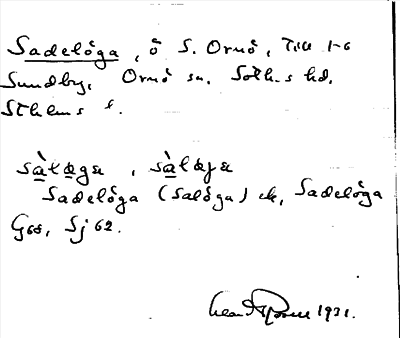 Sadelöga, ö S. Ornö, Till 1-6
Sundby, Ornö sn. Soth-s hd.
Sthlms l.
sàlægæ, sàlæjæ
Sadelöga (Salöga) ek, Sadelöga
Gss, Sj 62.
1931.